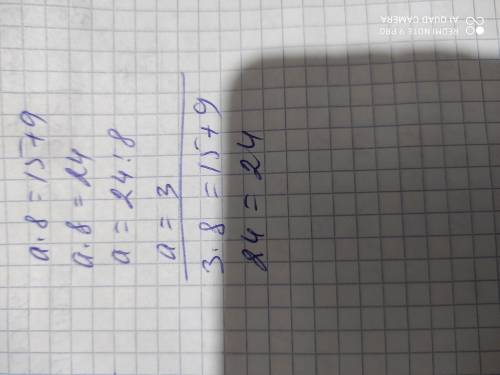 a·8=15+9
a·8=24
a=24:8
a=3
3·8=15+9
24=24
REDMI NOTE 9 PRO
AI QUAD CAMERA